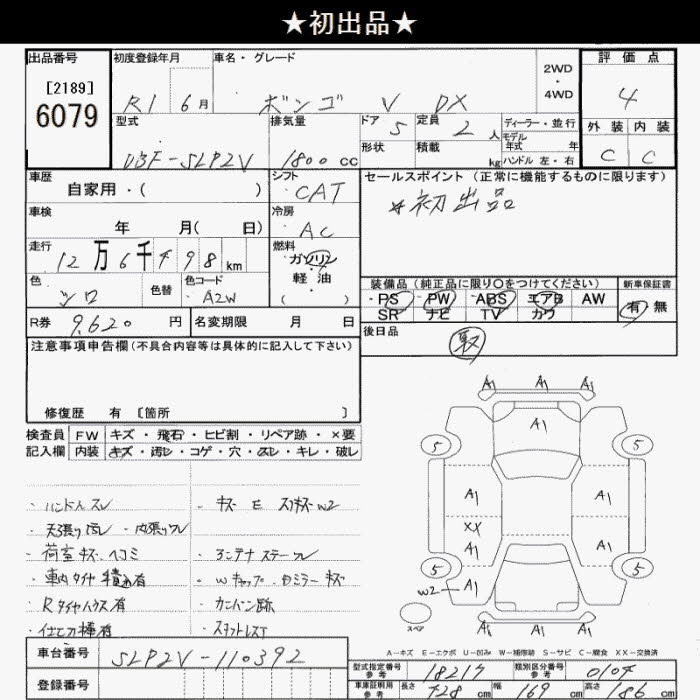 ★初出品★
出品番号
[2189]
6079
初度登録年月
R1 6月
車名・グレード
ボンゴ V DX
2WD
・
4WD
評価点
4
型式
DBF-SLP2V
排気量
1800 cc
ドア
5
定員
2人
ディーラー・並行
モデル
年式 年
形状
積載
kg
ハンドル 左・右
外装 内装
C C
車歴
自家用・( )
シフト
CAT
セールスポイント (正常に機能するものに限ります)
*初出品
車検
年 月( 日)
冷房
AC
走行
12万6千498km
燃料
ガソリン
・
軽油
( )
色
シロ
色替
色コード
A2W
装備品 (純正品に限り○をつけてください)
PS PW ABS エアB AW
SR ナビ TV カワ
新車保証書
有 無
R券 9,620 円
名変期限 月 日
後日品
取
注意事項申告欄(不具合内容等は具体的に記入して下さい)
修復歴 有 [箇所 ]
検査員 FW キズ・飛石・ヒビ割・リペア跡・×要
記入欄 内装 キズ・汚レ・コゲ・穴・スレ・キレ・破レ
・ハンドルスレ
・天張り汚レ ・内張ワレ
・荷室キズ、ヘコミ
・車内タイヤ積込有
・Rタイヤハウス有
・仕切り棒有
・キズ E スリキズ W2
・コンテナステーワレ
・Wキャップ・Dミラーキズ
・カンバン跡
・スタットレスT
A1 A1 A1
A1
5 5
A1 A1
XX
A1 A1
5 5
W2 A1
A1 A1 A1
スペア
A−キズ E−エクボ U−凹み W−補修跡 S−サビ C−腐食 XX−交換済
車台番号 SLP2V-110392
登録番号
型式指定番号
参考
18217
類別区分番号
参考
0104
車庫証明用
参考
長さ 428 cm 幅 169 cm 高さ 186 cm